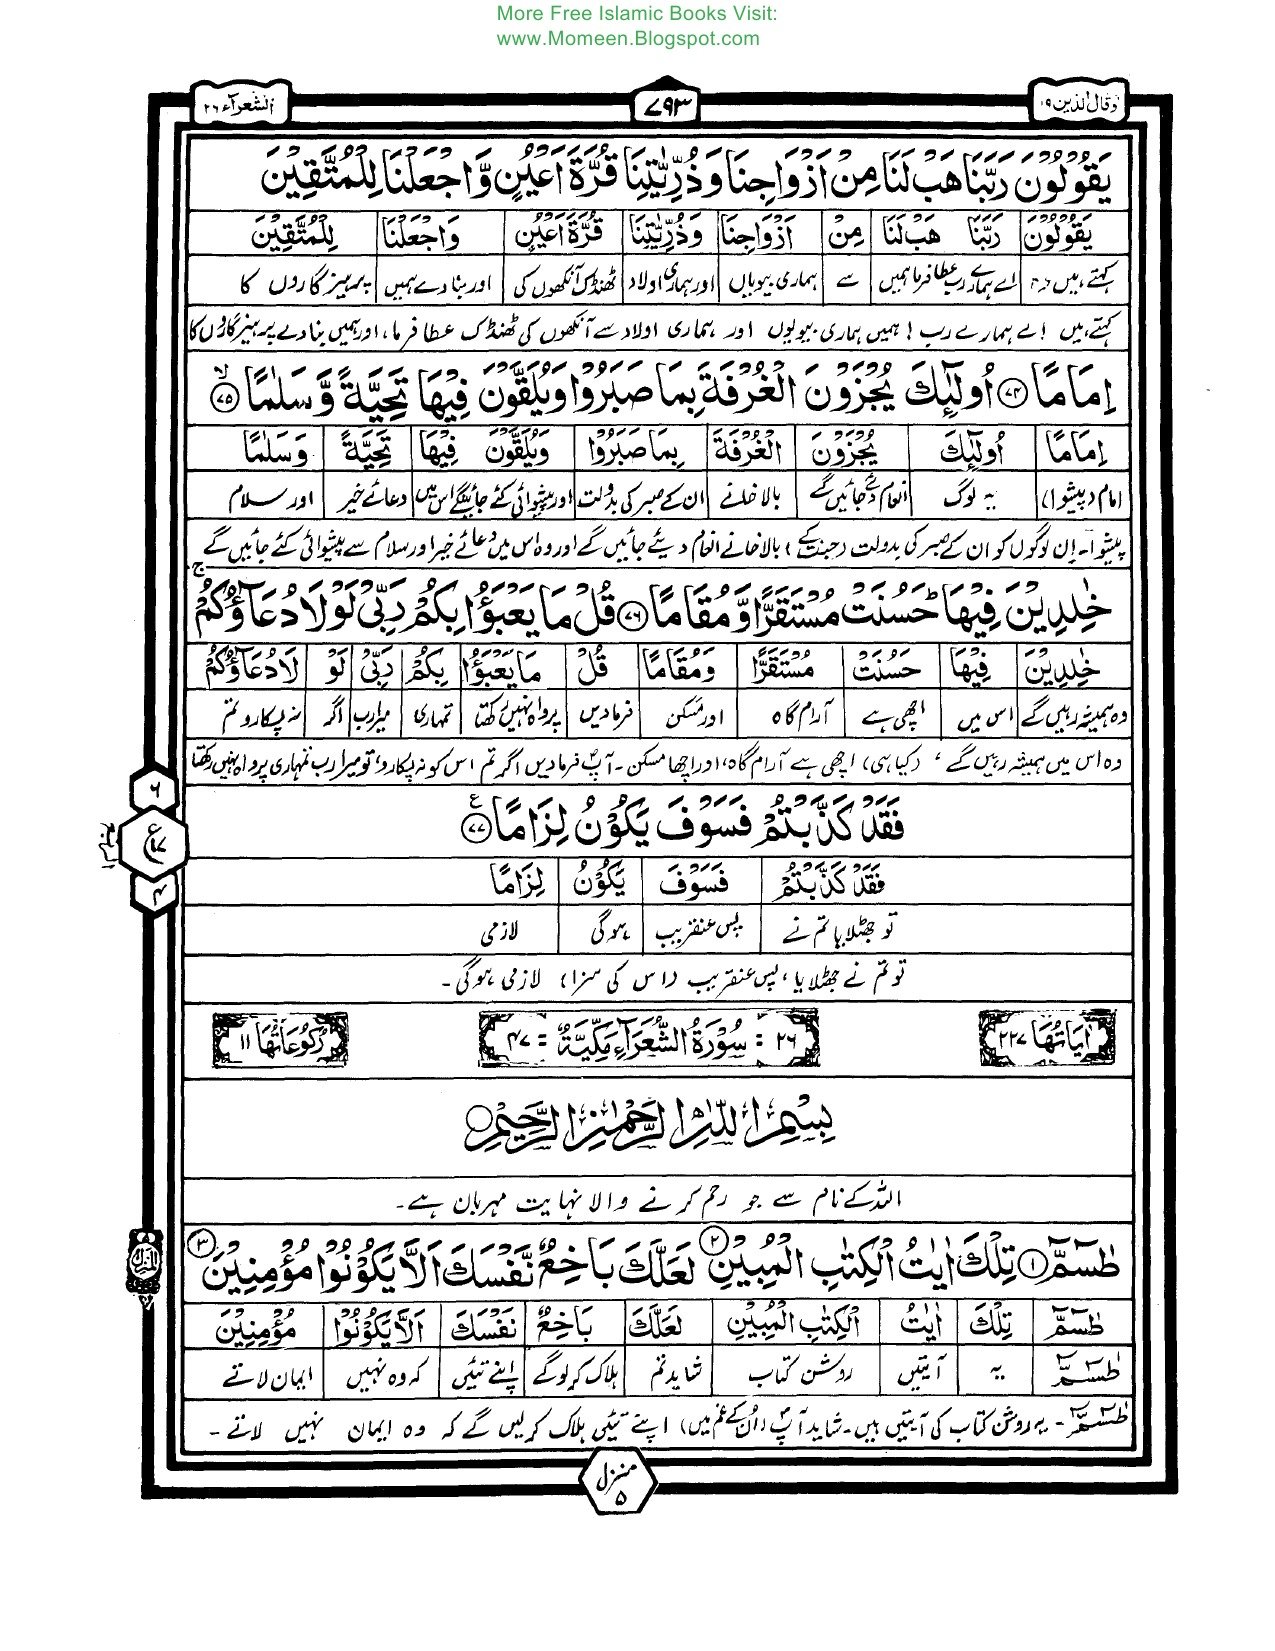 More Free Islamic Books Visit:
www.Momeen.Blogspot.com
وقال الذین ۱۹
۷۹۳
الشعرآء ۲۶
يَقُوْلُوْنَ رَبَّنَا هَبْ لَنَا مِنْ اَزْوَاجِنَا وَذُرِّيّٰتِنَا قُرَّةَ اَعْيُنٍ وَّاجْعَلْنَا لِلْمُتَّقِيْنَ
يَقُوْلُوْنَ رَبَّنَا هَبْ لَنَا مِنْ اَزْوَاجِنَا وَذُرِّيّٰتِنَا قُرَّةَ اَعْيُنٍ وَاجْعَلْنَا لِلْمُتَّقِيْنَ
کہتے ہیں وہ اے ہمارے رب عطا فرما ہمیں سے ہماری بیویاں اور ہماری اولاد ٹھنڈک آنکھوں کی اور بنا دے ہمیں پرہیزگاروں کا
کہتے ہیں اے ہمارے رب! ہمیں ہماری بیویوں اور ہماری اولاد سے آنکھوں کی ٹھنڈک عطا فرما، اور ہمیں بنا دے پرہیزگاروں کا
اِمَامًا ۷۴ اُولٰٓئِكَ يُجْزَوْنَ الْغُرْفَةَ بِمَا صَبَرُوْا وَيُلَقَّوْنَ فِيْهَا تَحِيَّةً وَّسَلٰمًا ۷۵ لا
اِمَامًا اُولٰٓئِكَ يُجْزَوْنَ الْغُرْفَةَ بِمَا صَبَرُوْا وَيُلَقَّوْنَ فِيْهَا تَحِيَّةً وَسَلٰمًا
امام (پیشوا) یہ لوگ انعام دئے جائیں گے بالا خانے ان کے صبر کی بدولت اور پیشوائی کئے جائینگے اس میں دعائے خیر اور سلام
پیشوا۔ ان لوگوں کو ان کے صبر کی بدولت (جنت کے) بالا خانے انعام دیئے جائیں گے اور وہ اس میں دعائے خیر اور سلام سے پیشوائی کئے جائیں گے
خٰلِدِيْنَ فِيْهَا ط حَسُنَتْ مُسْتَقَرًّا وَّمُقَامًا ۷۶ قُلْ مَا يَعْبَؤُا بِكُمْ رَبِّيْ لَوْلَا دُعَآؤُكُمْ ج
خٰلِدِيْنَ فِيْهَا حَسُنَتْ مُسْتَقَرًّا وَمُقَامًا قُلْ مَا يَعْبَؤُا بِكُمْ رَبِّيْ لَوْ لَا دُعَآؤُكُمْ
وہ ہمیشہ رہیں گے اس میں اچھی ہے آرام گاہ اور مسکن فرمادیں پرواہ نہیں رکھتا تمہاری میرا رب اگر نہ پکارو تم
وہ اس میں ہمیشہ رہیں گے، (کیا ہی) اچھی ہے آرام گاہ، اور اچھا مسکن۔ آپ فرمادیں اگر تم اس کو نہ پکارو، تو میرا رب تمہاری پرواہ نہیں رکھتا
فَقَدْ كَذَّبْتُمْ فَسَوْفَ يَكُوْنُ لِزَامًا ۷۷ ع
فَقَدْ كَذَّبْتُمْ فَسَوْفَ يَكُوْنُ لِزَامًا
تو جھٹلایا تم نے پس عنقریب ہوگی لازمی
تو تم نے جھٹلایا، پس عنقریب (اس کی سزا) لازمی ہوگی۔
۶
ع ۱۷
۴
اٰیَاتُهَا ۲۲۷
۲۶ : سُوْرَةُ الشُّعَرَآءِ مَكِّيَّةٌ : ۴۷
رُكُوْعَاتُهَا ۱۱
بِسْمِ اللّٰهِ الرَّحْمٰنِ الرَّحِيْمِ
اللہ کے نام سے جو رحم کرنے والا نہایت مہربان ہے۔
طٰسٓمّٓ ۱ تِلْكَ اٰيٰتُ الْكِتٰبِ الْمُبِيْنِ ۲ لَعَلَّكَ بَاخِعٌ نَّفْسَكَ اَلَّا يَكُوْنُوْا مُؤْمِنِيْنَ ۳
طٰسٓمّٓ تِلْكَ اٰيٰتُ الْكِتٰبِ الْمُبِيْنِ لَعَلَّكَ بَاخِعٌ نَفْسَكَ اَلَّا يَكُوْنُوْا مُؤْمِنِيْنَ
طٰسٓمّٓ یہ آیتیں روشن کتاب شاید تم ہلاک کرلوگے اپنے تئیں کہ وہ نہیں ایمان لاتے
طٰسٓمّٓ۔ یہ روشن کتاب کی آیتیں ہیں۔ شاید آپ (ان کے غم میں) اپنے تئیں ہلاک کرلیں گے کہ وہ ایمان نہیں لاتے۔
منزل
۵